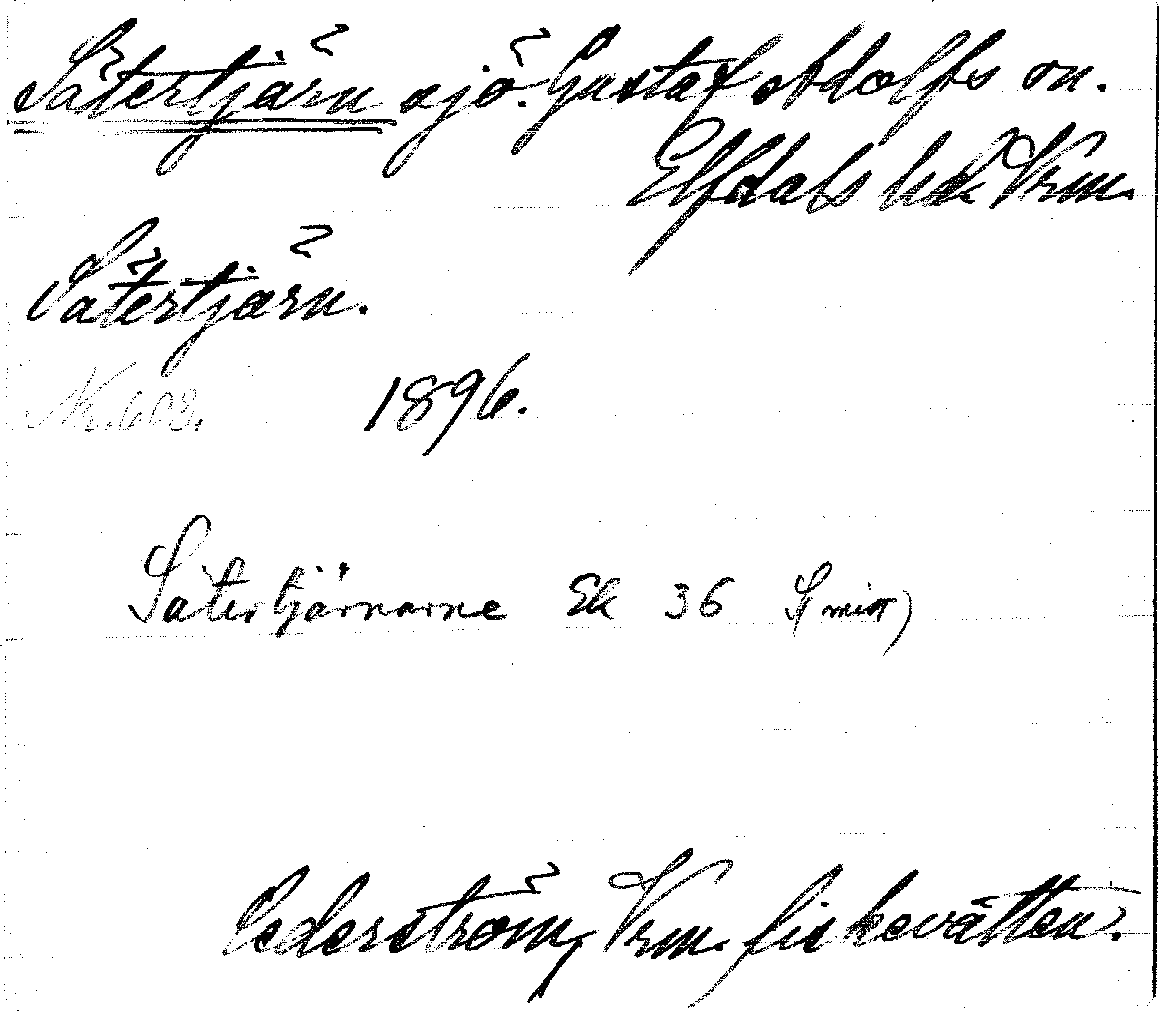 Sätertjärn sjö. Gustaf Adolfs sn.
Elfdals hd. Vrm.
Sätertjärn.
Nr. 602. 1896.
Sätertjärnarne Ek 36
Cederström, Vrm. fiskevatten.